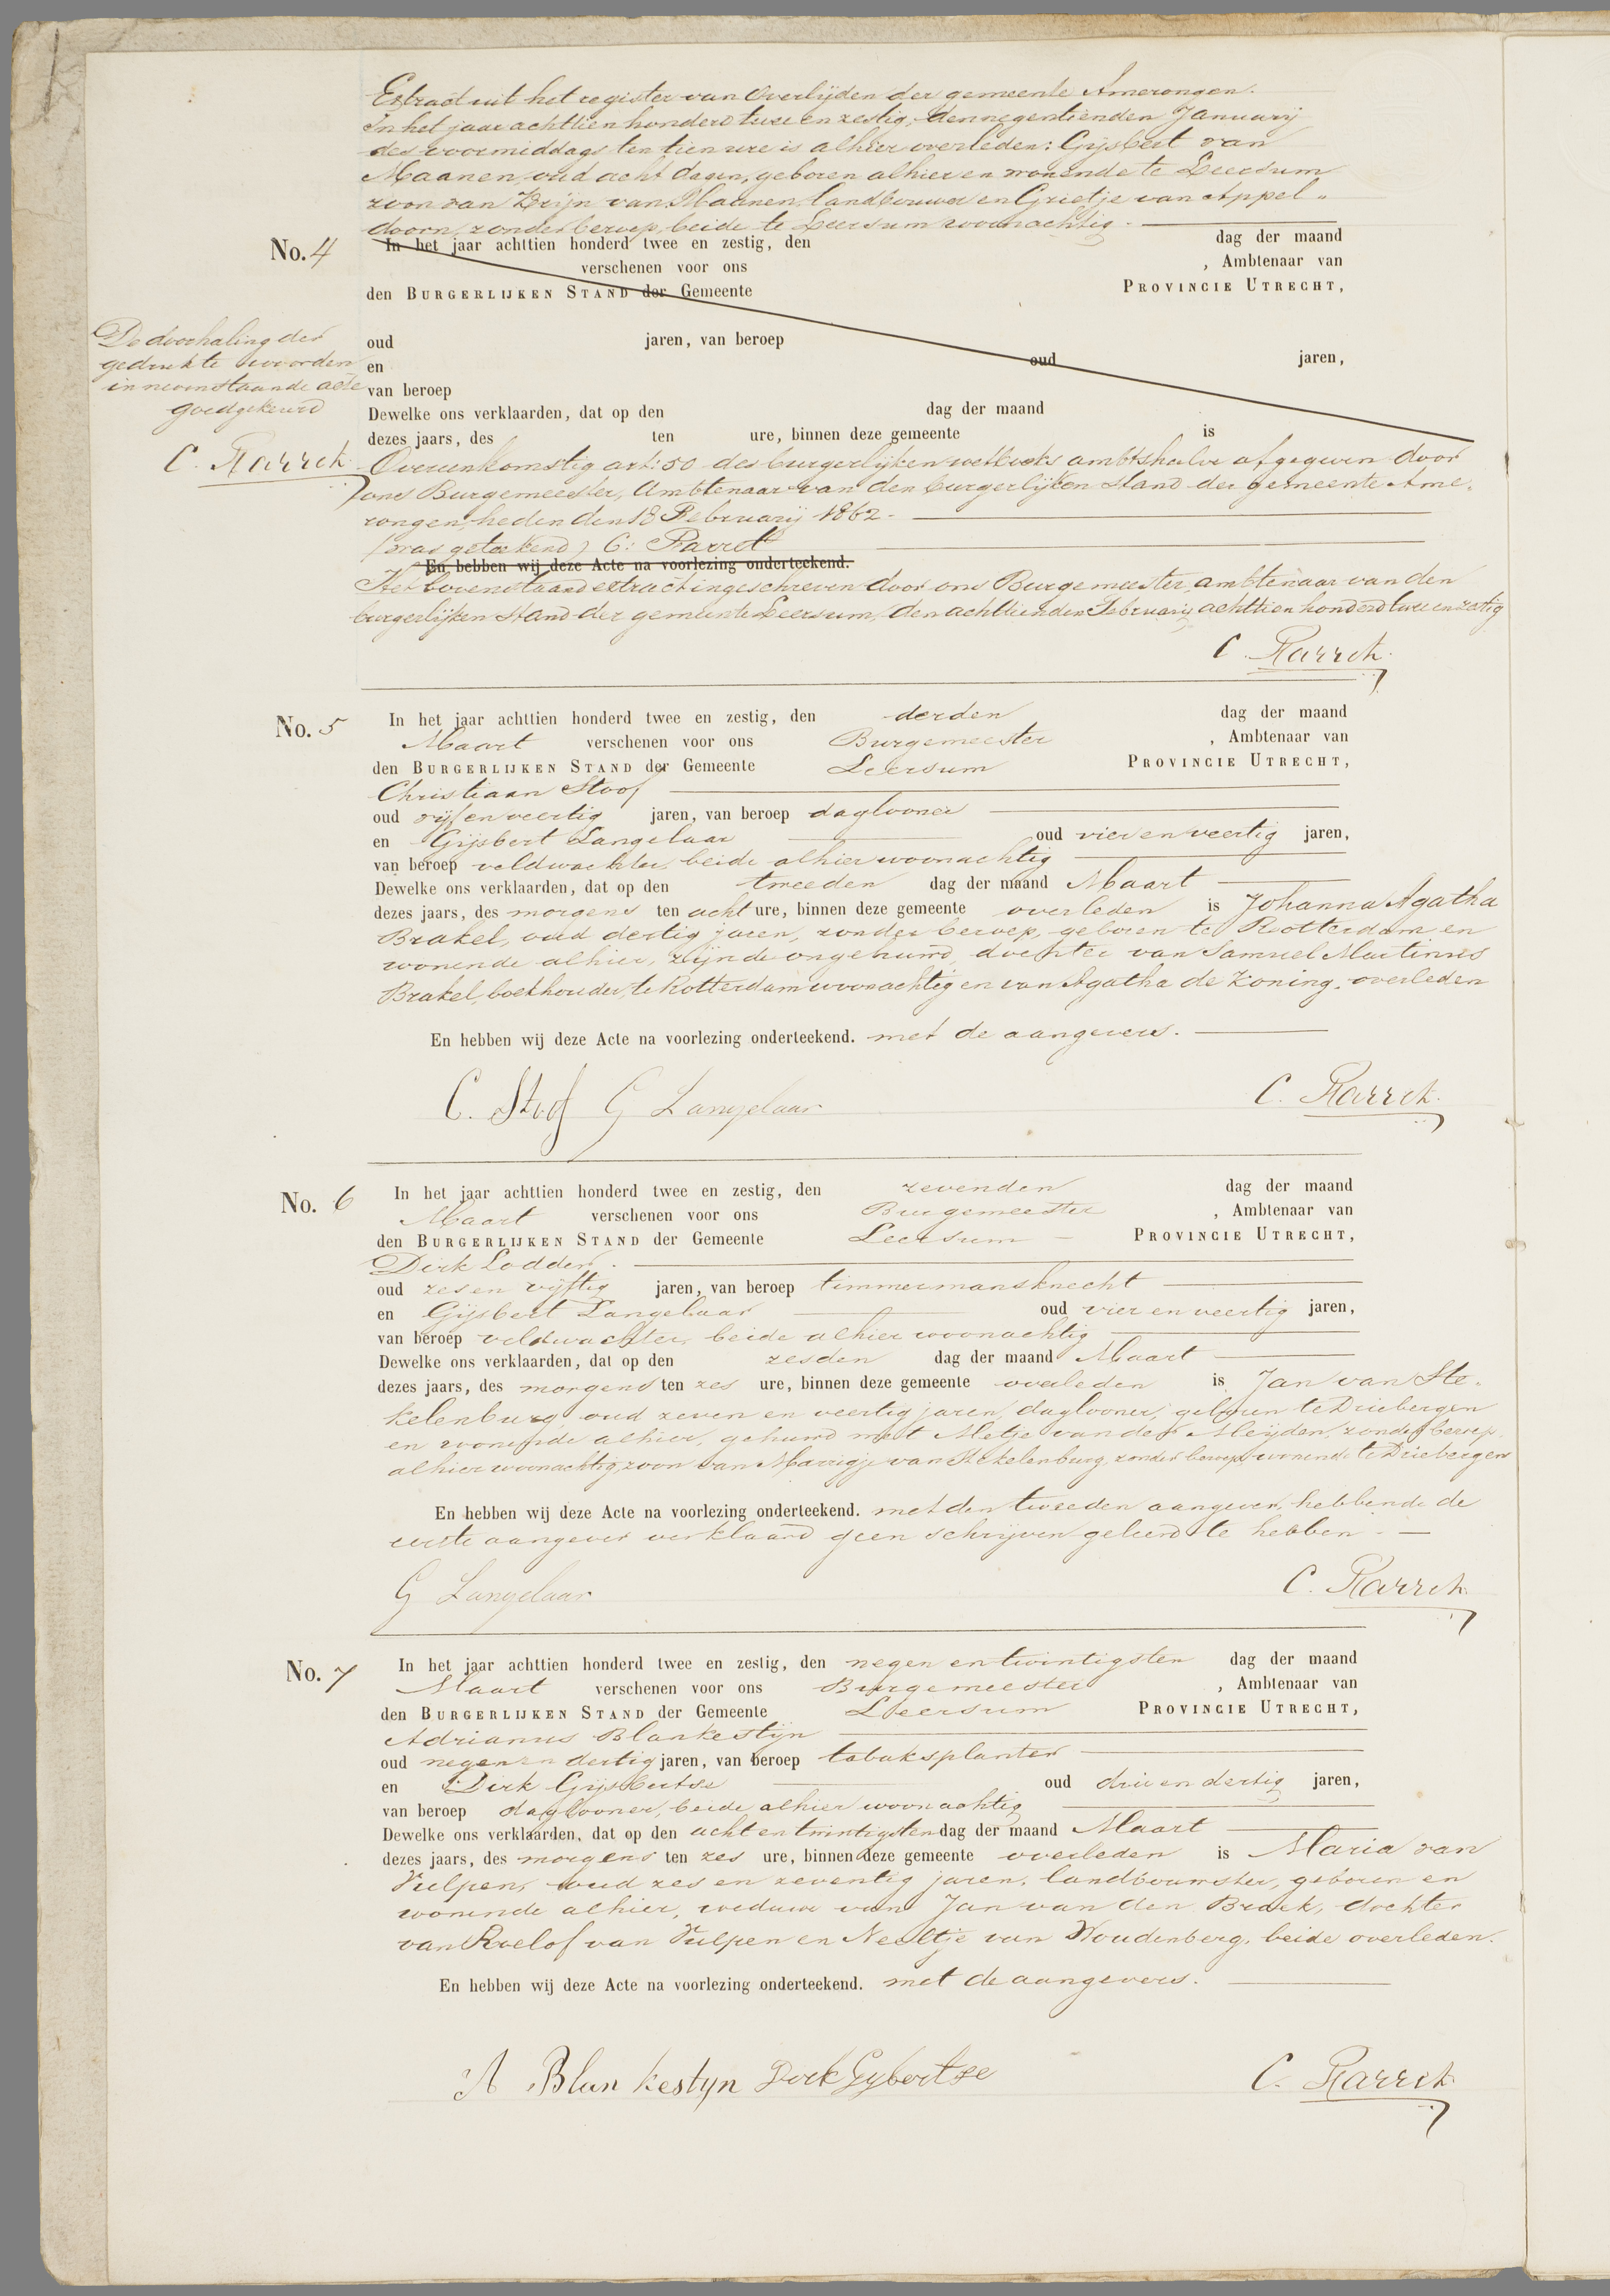 Extract uit het register van Overlijden der gemeente Amerongen.
In het jaar achttien honderd twee en zestig, den negentienden Januarij
des voormiddags ten tien ure is alhier overleden: Gijsbert van
Maanen, oud acht dagen, geboren alhier en wonende te Leersum
zoon van Krijn van Maanen, landbouwer en Grietje van Appel-
doorn, zonder beroep, beide te Leersum woonachtig.
No. 4
In het jaar achttien honderd twee en zestig, den dag der maand
verschenen voor ons , Ambtenaar van
den BURGERLIJKEN STAND der Gemeente PROVINCIE UTRECHT,
oud jaren, van beroep
en oud jaren,
van beroep
Dewelke ons verklaarden, dat op den dag der maand
dezes jaars, des ten ure, binnen deze gemeente is
De doorhaling der
gedrukte woorden
in nevenstaande acte
goedgekeurd
C. Karrch
Overeenkomstig art: 50 des burgerlijken wetboeks ambtshalve afgegeven door
ons Burgemeester, Ambtenaar van den burgerlijken stand der gemeente Ame-
rongen, heden den 18 Februarij 1862.
(was geteekend) C: Karrch
En hebben wij deze Acte na voorlezing onderteekend.
Het bovenstaand extract ingeschreven door ons Burgemeester, ambtenaar van den
burgerlijken stand der gemeente Leersum, den achttienden Februarij achttien honderd twee en zestig
C. Karrch.
No. 5 In het jaar achttien honderd twee en zestig, den derden dag der maand
Maart verschenen voor ons Burgemeester , Ambtenaar van
den BURGERLIJKEN STAND der Gemeente Leersum PROVINCIE UTRECHT,
Christiaan Stoof
oud vijf en veertig jaren, van beroep daglooner
en Gijsbert Langelaar oud vier en veertig jaren,
van beroep veldwachter, beide alhier woonachtig
Dewelke ons verklaarden, dat op den tweeden dag der maand Maart
dezes jaars, des morgens ten acht ure, binnen deze gemeente overleden is Johanna Agatha
Brakel, oud dertig jaren, zonder beroep, geboren te Rotterdam en
wonende alhier, zijnde ongehuwd, dochter van Samuel Martinus
Brakel, boekhouder, te Rotterdam woonachtig en van Agatha de Koning, overleden
En hebben wij deze Acte na voorlezing onderteekend. met de aangevers.
C. Stoof G Langelaar C. Karrch.
No. 6 In het jaar achttien honderd twee en zestig, den zevenden dag der maand
Maart verschenen voor ons Burgemeester , Ambtenaar van
den BURGERLIJKEN STAND der Gemeente Leersum PROVINCIE UTRECHT,
Dirk Lodder
oud zes en vijftig jaren, van beroep timmermansknecht
en Gijsbert Langelaar oud vier en veertig jaren,
van beroep veldwachter, beide alhier woonachtig
Dewelke ons verklaarden, dat op den zesden dag der maand Maart
dezes jaars, des morgens ten zes ure, binnen deze gemeente overleden is Jan van Ste-
kelenburg, oud zeven en veertig jaren, daglooner, geboren te Driebergen
en wonende alhier, gehuwd met Metje van der Meijden, zonder beroep,
alhier woonachtig, zoon van Marrigje van Stekelenburg, zonder beroep wonende te Driebergen
En hebben wij deze Acte na voorlezing onderteekend. met den tweeden aangever, hebbende de
eerste aangever verklaard geen schrijven geleerd te hebben.
G Langelaar C. Karrch.
No. 7 In het jaar achttien honderd twee en zestig, den negen en twintigsten dag der maand
Maart verschenen voor ons Burgemeester , Ambtenaar van
den BURGERLIJKEN STAND der Gemeente Leersum PROVINCIE UTRECHT,
Adrianus Blankestijn
oud negen en dertig jaren, van beroep tabaksplanter
en Dirk Gijsbertse oud drie en dertig jaren,
van beroep daglooner, beide alhier woonachtig
Dewelke ons verklaarden, dat op den acht en twintigsten dag der maand Maart
dezes jaars, des morgens ten zes ure, binnen deze gemeente overleden is Maria van
Vulpen, oud zes en zeventig jaren, landbouwster, geboren en
wonende alhier, weduwe van Jan van den Broek, dochter
van Roelof van Vulpen en Neeltje van Woudenberg, beide overleden.
En hebben wij deze Acte na voorlezing onderteekend. met de aangevers.
A Blankestyn Dirk Gysbertse C. Karrch.